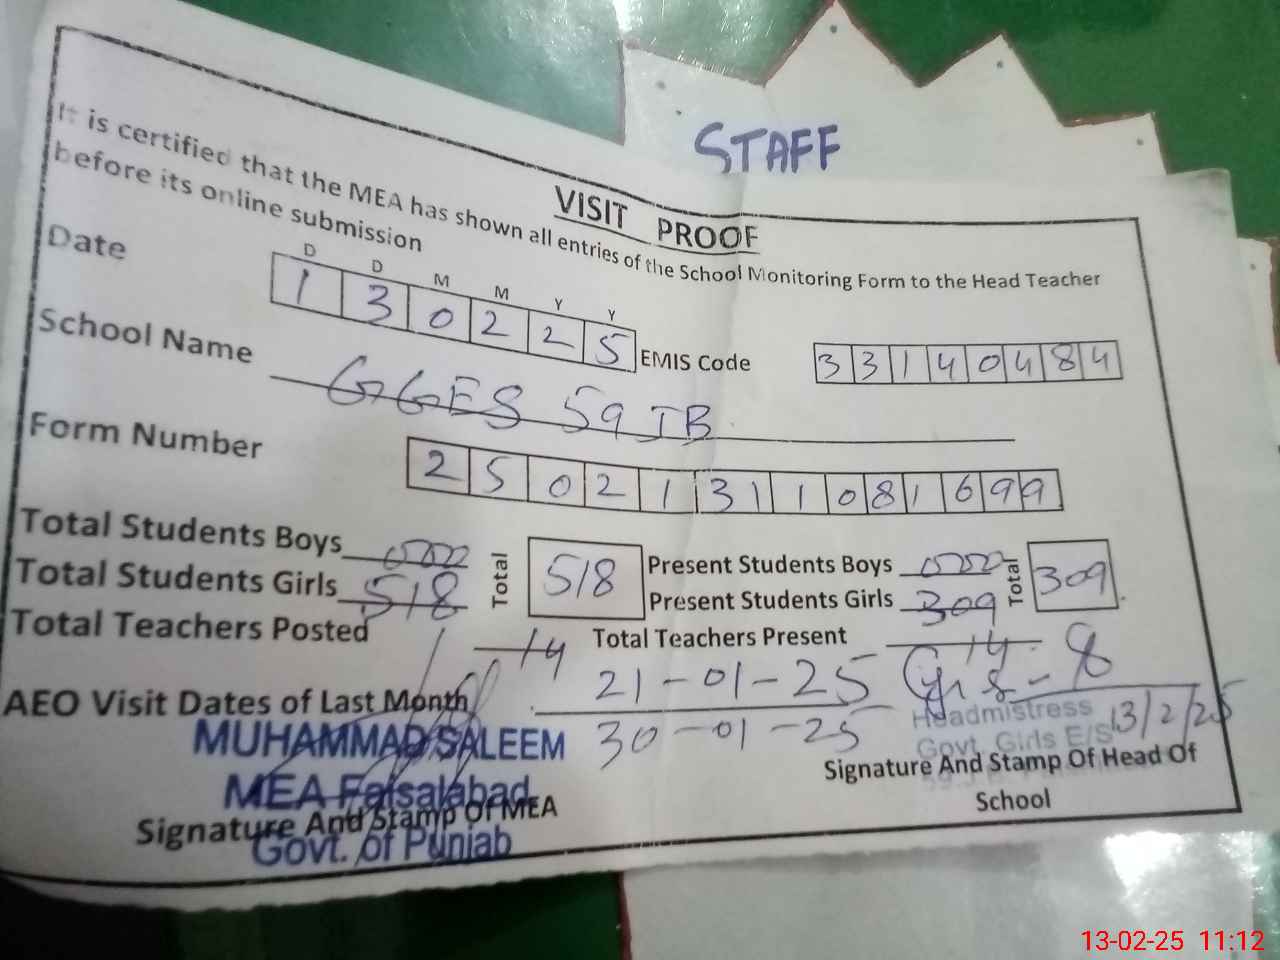 STAFF
VISIT PROOF
It is certified that the MEA has shown all entries of the School Monitoring Form to the Head Teacher
before its online submission
D D M M Y Y
Date 1 3 0 2 2 5 EMIS Code 3 3 1 4 0 4 8 4
School Name GGES 59 JB
Form Number 2 5 0 2 1 3 1 1 0 8 1 6 9 9
Total Students Boys 000 Total 518 Present Students Boys 000 Total 309
Total Students Girls 518 Present Students Girls 309
Total Teachers Posted 14 Total Teachers Present 14
AEO Visit Dates of Last Month 21-01-25
30-01-25
13/2/25
MUHAMMAD SALEEM
MEA Faisalabad
Govt. of Punjab
Signature And Stamp Of MEA
Headmistress
Govt. Girls E/S
Signature And Stamp Of Head Of
School
13-02-25 11:12